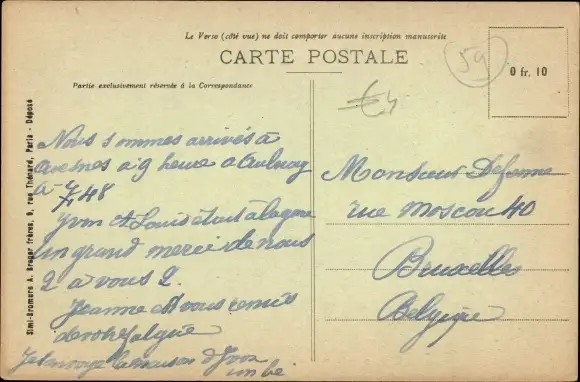 Le Verso (côté vue) ne doit comporter aucune inscription manuscrite
CARTE POSTALE
Partie exclusivement réservée à la Correspondance
59
0 fr. 10
€4
Simi-Bromure A. Breger frères, 9, rue Thénard, Paris - Déposé
Nous sommes arrivés à
avesnes a 9 heure a Aulnoy
a 7,48
Yvon et Louis étais à la gare
un grand merci de nous
2 a vous 2.
Jeanne et vous remis
de
Je la maison d'Yvon
Monsieur
rue Moscou 40
Bruxelles
Belgique